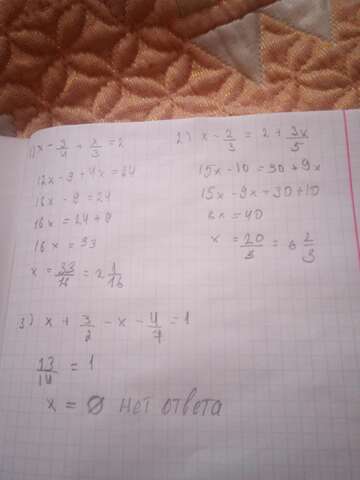 1) x - 3/4 + x/3 = 2
12x - 9 + 4x = 24
16x - 9 = 24
16x = 24 + 9
16x = 33
x = 33/16 = 2 1/16
2) x - 2/3 = 2 + 3x/5
15x - 10 = 30 + 9x
15x - 9x + 30 + 10
6x = 40
x = 20/3 = 6 2/3
3) x + 3/2 - x - 4/7 = 1
13/14 = 1
x = Ø нет ответа